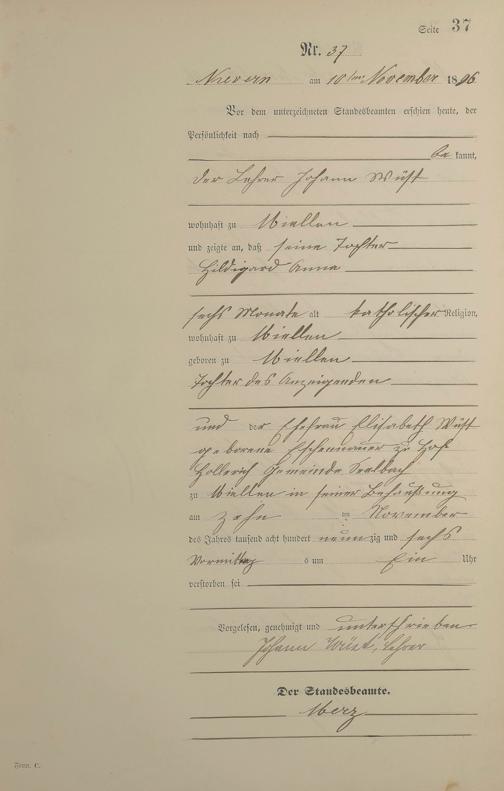 Seite 37
Nr. 37
Nievern am 10ten November 1896
Vor dem unterzeichneten Standesbeamten erschien heute, der
Persönlichkeit nach
be kannt,
der Lehrer Johann Wüst
wohnhaft zu Miellen
und zeigte an, daß seine Tochter
Hildigard Anna
sechs Monate alt katholischer Religion,
wohnhaft zu Miellen
geboren zu Miellen
Tochter des Anzeigenden
und der Ehefrau Elisabeth Wüst
geborene Eschenauer zu Hof
Hollerich Gemeinde Seelbach
zu Miellen in seiner Behausung
am zehn ten November
des Jahres tausend acht hundert neun zig und sechs
Vormittags um Ein Uhr
verstorben sei
Vorgelesen, genehmigt und unterschrieben
Johann Wüst, Lehrer
Der Standesbeamte.
Merz
Form. C.